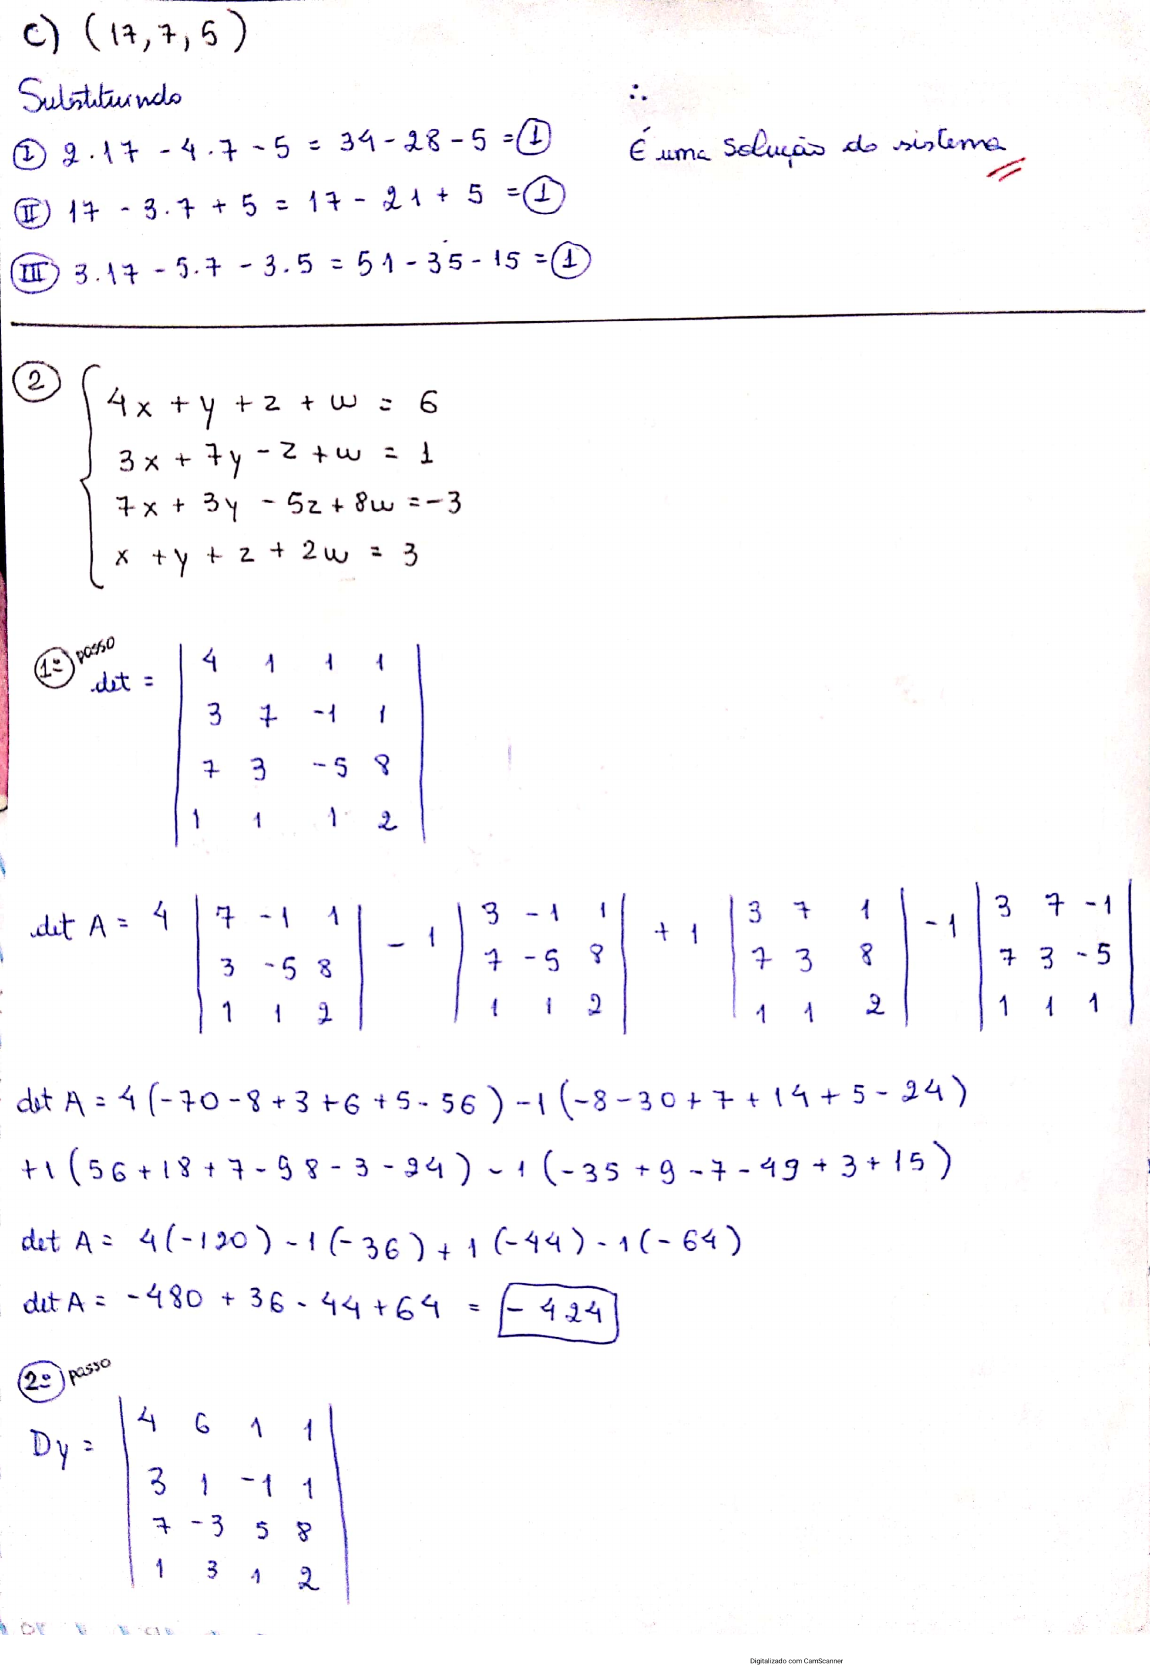 c) (17, 7, 5)
Substituindo
∴
I) 2.17 - 4.7 - 5 = 34 - 28 - 5 = 1
É uma solução do sistema
II) 17 - 3.7 + 5 = 17 - 21 + 5 = 1
III) 3.17 - 5.7 - 3.5 = 51 - 35 - 15 = 1
2
4x + y + z + w = 6
3x + 7y - z + w = 1
7x + 3y - 5z + 8w = -3
x + y + z + 2w = 3
1º passo
det =
4 1 1 1
3 7 -1 1
7 3 -5 8
1 1 1 2
det A = 4 | 7 -1 1 | - 1 | 3 -1 1 | + 1 | 3 7 1 | - 1 | 3 7 -1 |
| 3 -5 8 | | 7 -5 8 | | 7 3 8 | | 7 3 -5 |
| 1 1 2 | | 1 1 2 | | 1 1 2 | | 1 1 1 |
det A = 4 (-70 - 8 + 3 + 6 + 5 - 56) - 1 (-8 - 30 + 7 + 14 + 5 - 24)
+1 (56 + 18 + 7 - 98 - 3 - 24) - 1 (-35 + 9 - 7 - 49 + 3 + 15)
det A = 4(-120) - 1(-36) + 1 (-44) - 1(-64)
det A = -480 + 36 - 44 + 64 = -424
2º passo
Dy =
4 6 1 1
3 1 -1 1
7 -3 5 8
1 3 1 2
Digitalizado com CamScanner